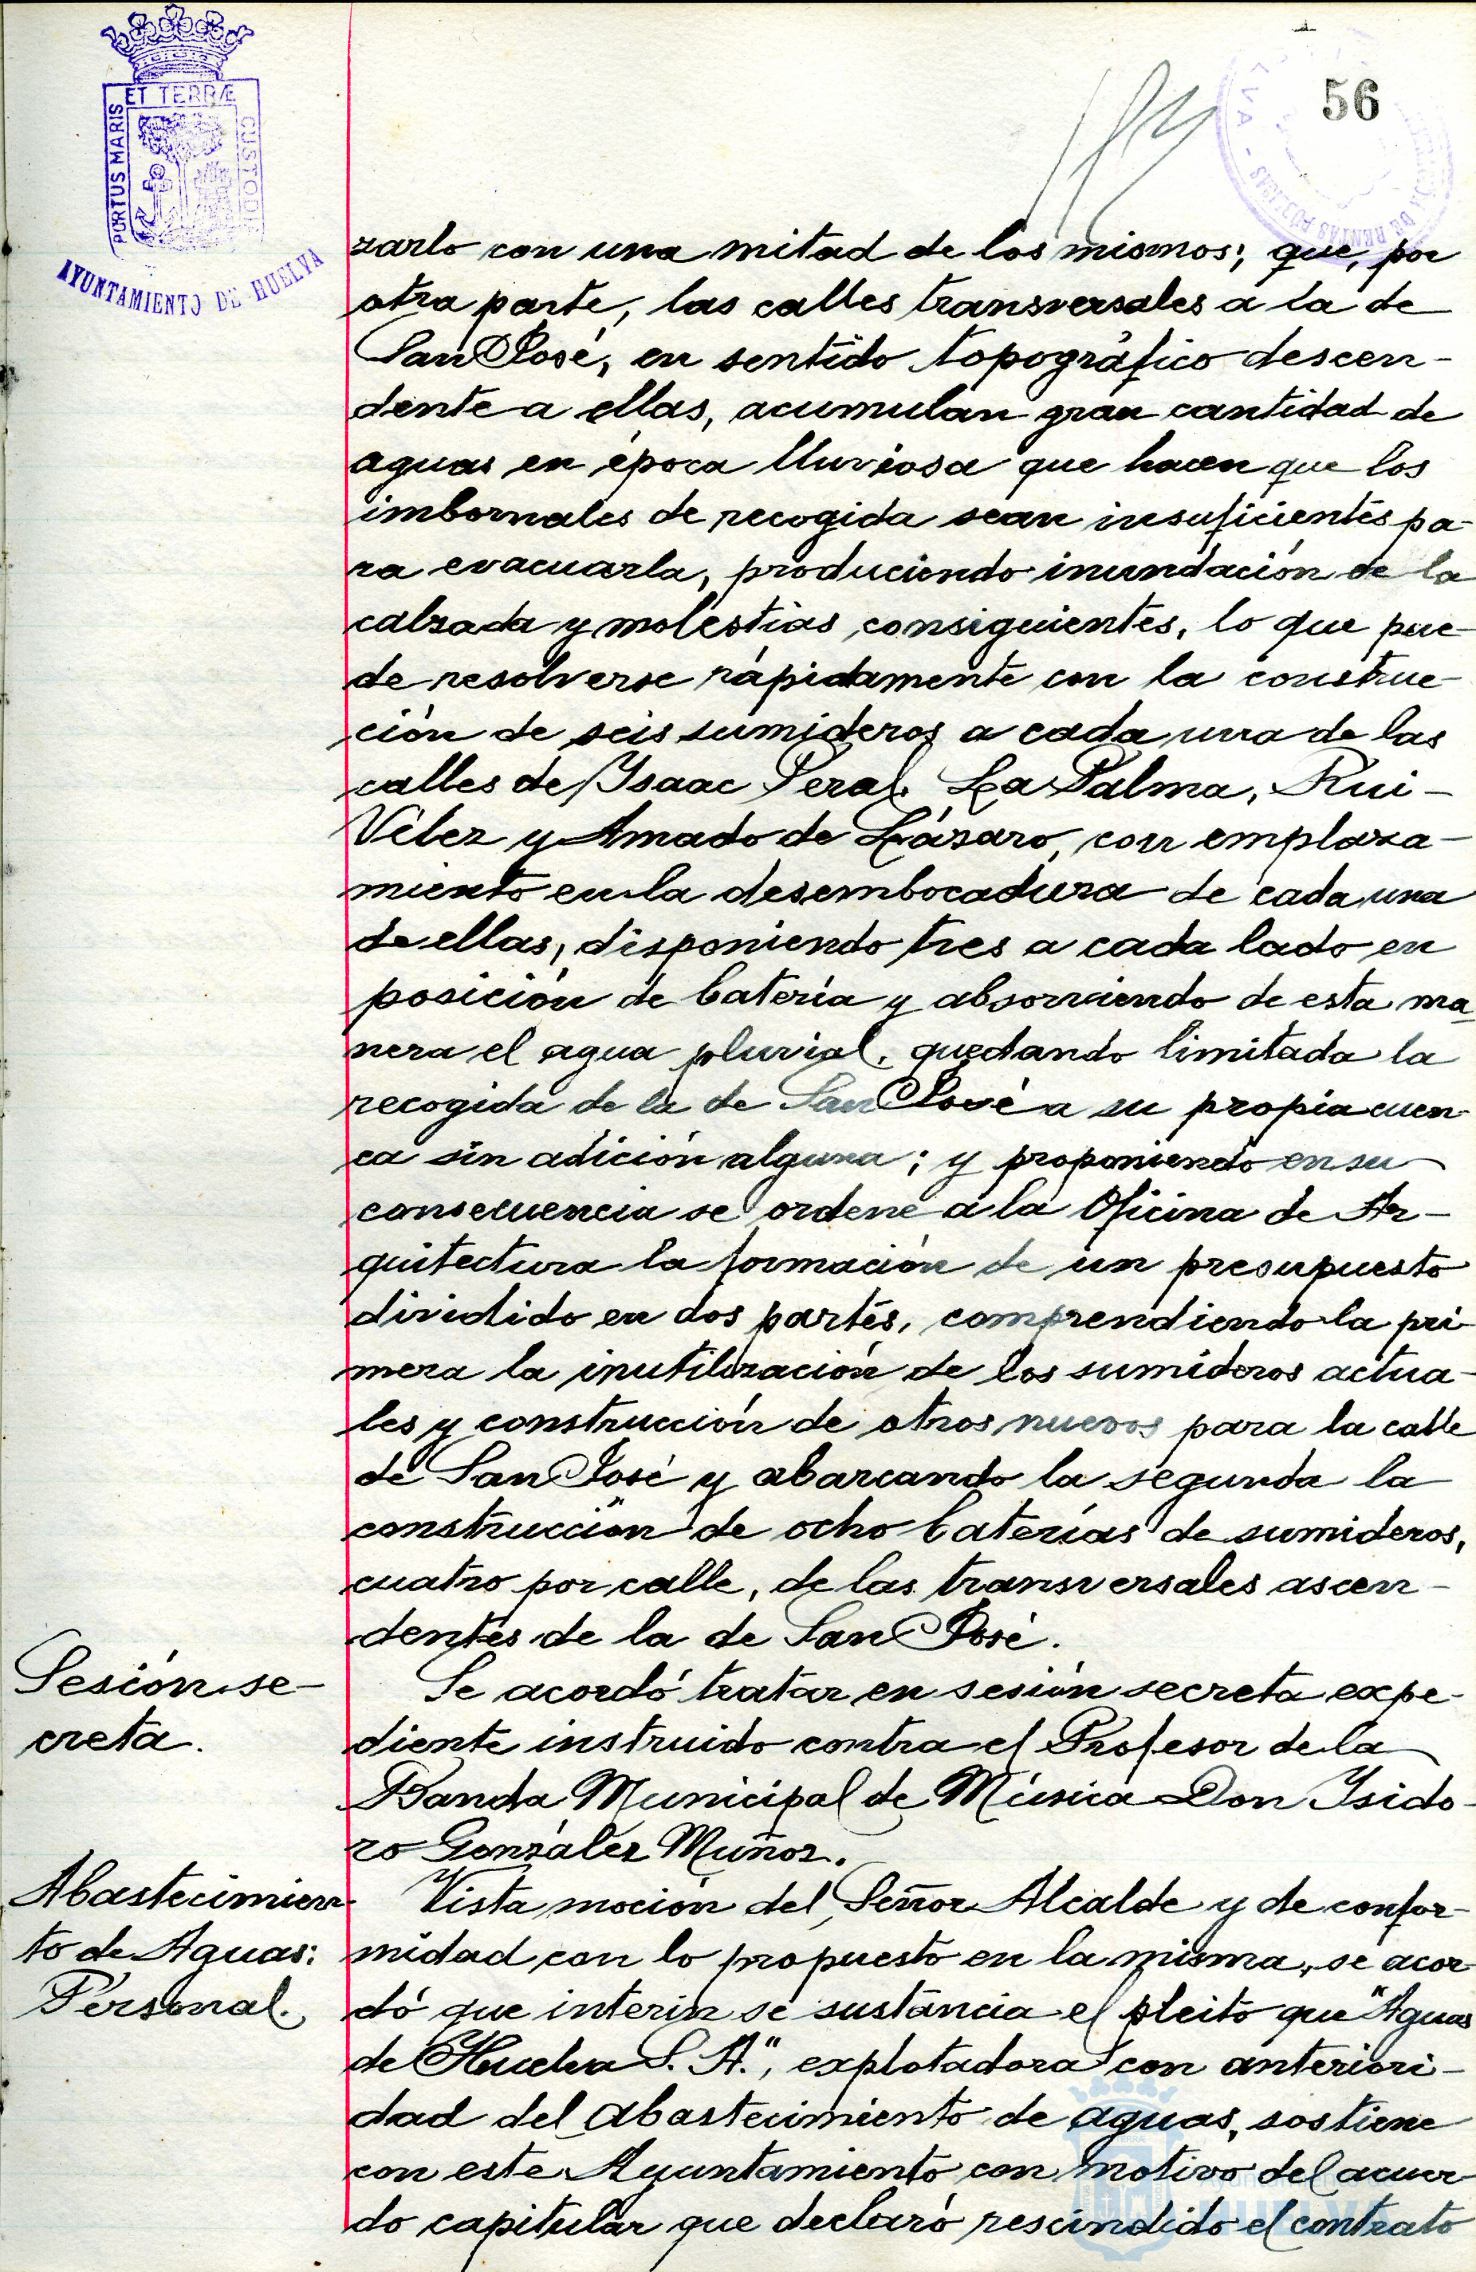 56
ET TERRÆ
PORTUS MARIS
CUSTODI
AYUNTAMIENTO DE HUELVA
zarlo con una mitad de los mismos; que, por
otra parte, las calles transversales a la de
San José, en sentido topográfico descen-
dente a ellas, acumulan gran cantidad de
aguas en época lluviosa que hacen que los
imbornales de recogida sean insuficientes pa-
ra evacuarla, produciendo inundación de la
calzada y molestias consiguientes, lo que pue-
de resolverse rápidamente con la construc-
ción de seis sumideros a cada una de las
calles de Isaac Peral. La Palma, Rui-
Vélez y Amado de Lázaro, con emplaza-
miento en la desembocadura de cada una
de ellas, disponiendo tres a cada lado en
posición de batería y absorviendo de esta ma-
nera el agua pluvial, quedando limitada la
recogida de la de San José a su propia cuen-
ca sin adición alguna; y proponiendo en su
consecuencia se ordene a la Oficina de Ar-
quitectura la formación de un presupuesto
dividido en dos partes, comprendiendo la pri-
mera la inutilización de los sumideros actua-
les y construcción de otros nuevos para la calle
de San José y abarcando la segunda la
construcción de ocho "baterías" de sumideros,
cuatro por calle, de las transversales ascen-
dentes de la de San José.
Sesión se-
creta.
Se acordó tratar en sesión secreta expe-
diente instruido contra el Profesor de la
Banda Municipal de Música Don Isido-
ro González Muñoz.
Abastecimien-
to de Aguas:
Personal.
Vista moción del Señor Alcalde y de confor-
midad con lo propuesto en la misma, se acor-
dó que interin se sustancia el pleito que "Aguas
de Huelva S. A.", explotadora con anteriori-
dad del abastecimiento de aguas, sostiene
con este Ayuntamiento con motivo del acuer-
do capitular que declaró rescindido el contrato
Ayuntamiento de
HUELVA